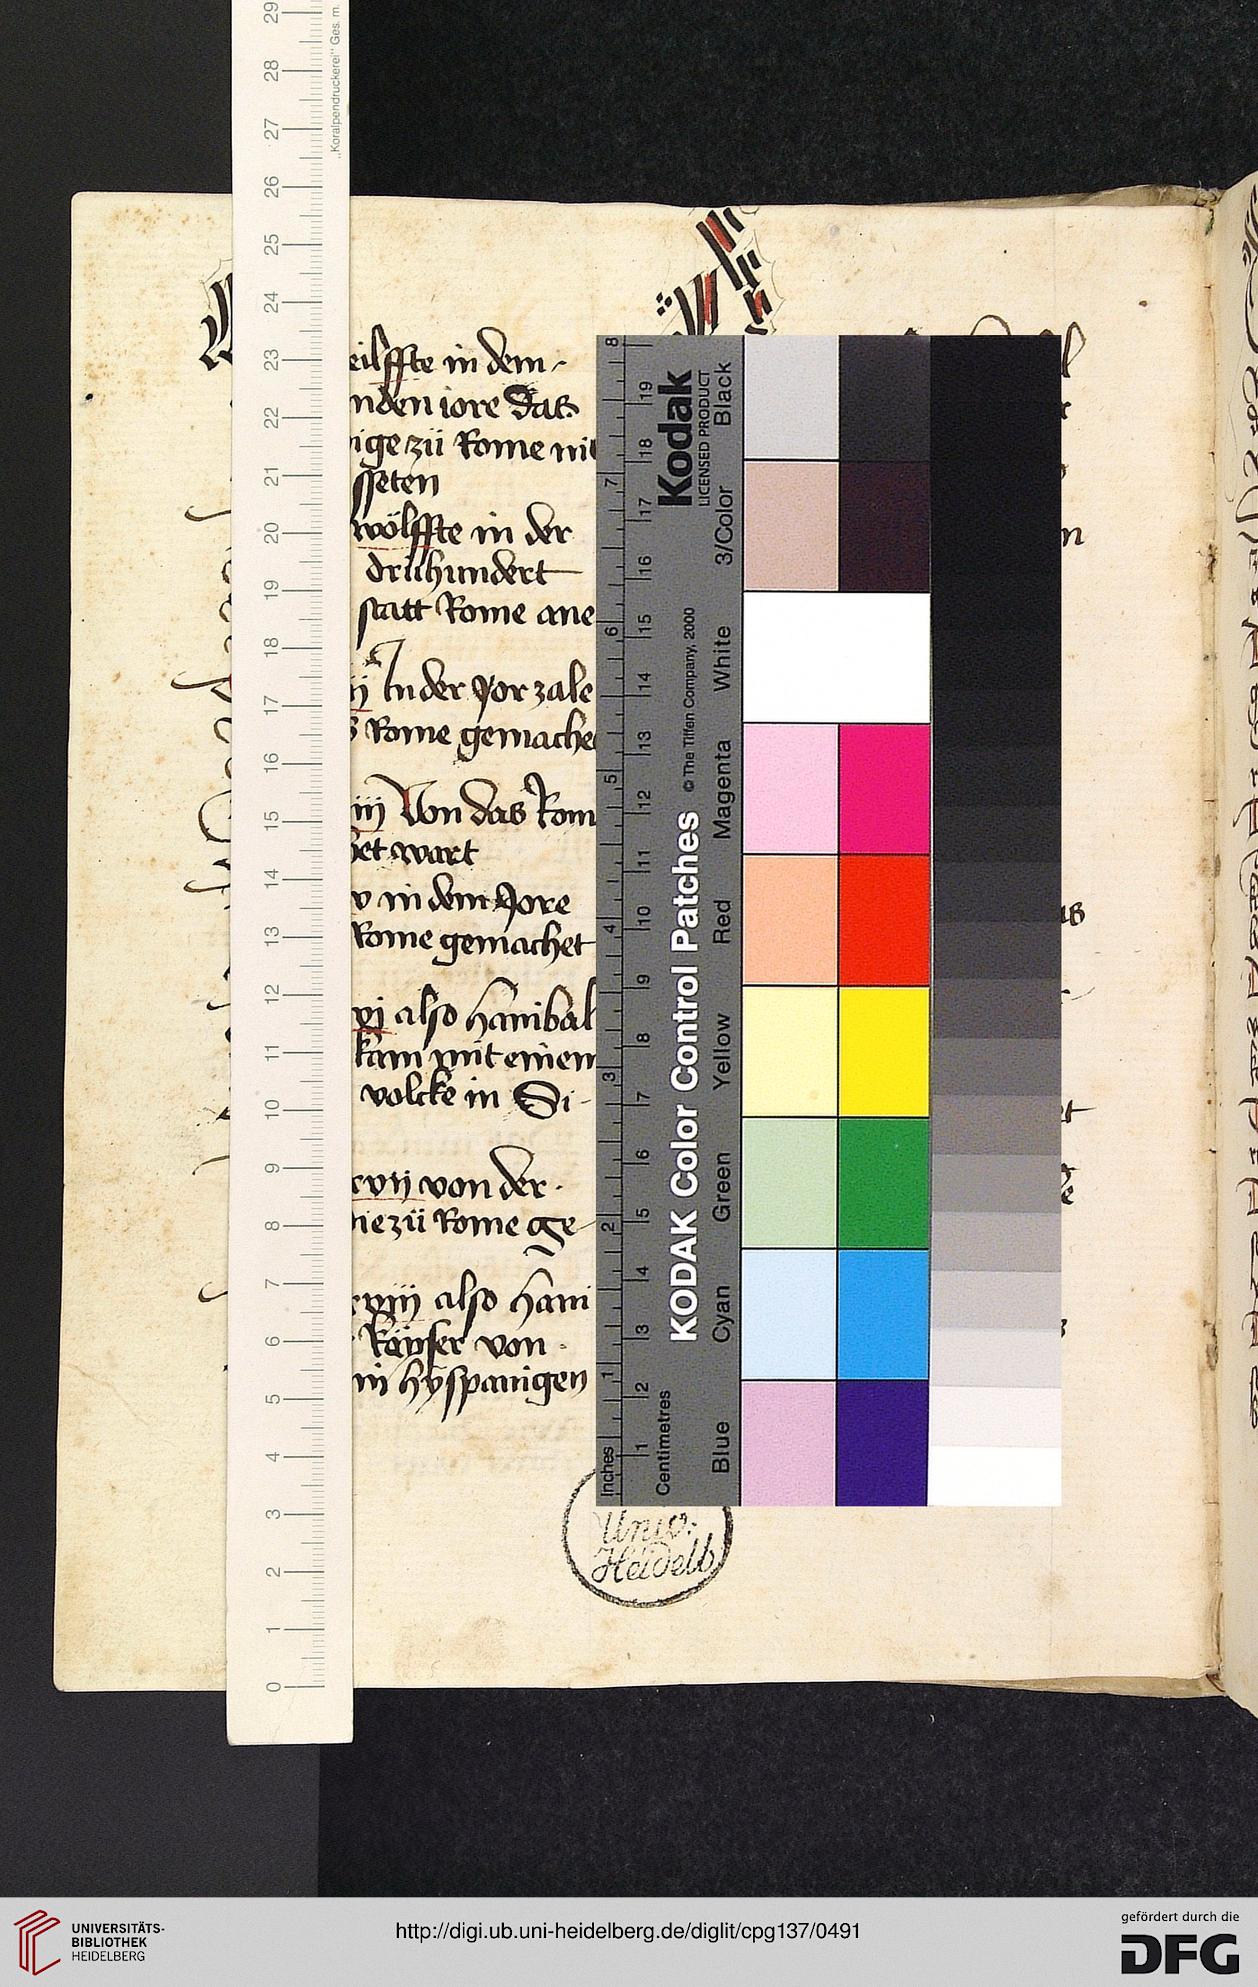 eilffte in dem
nden iore das
ige zü Rome nit
sseten
wölffte in der
druhundert
statt Rome ane
iij In der Jor zale
s Rome gemache
iiij Von das Rom
het wart
v in dem Jore
Rome gemachet
vj also hanibal
kam mit einem
volcke in Si
xvij von der
nie zü Rome ge
xviij also hani
Käyser von
in hyspanigen
n
as
et
Univ.
Heidelb
29
28
27
26
25
24
23
22
21
20
19
18
17
16
15
14
13
12
11
10
9
8
7
6
5
4
3
2
1
0
„Koralpendruckerei" Ges. m.
8
7
6
5
4
3
2
1
Inches
19
18
17
16
15
14
13
12
11
10
9
8
7
6
5
4
3
2
1
Centimetres
Kodak
LICENSED PRODUCT
© The Tiffen Company, 2000
KODAK Color Control Patches
Black
3/Color
White
Magenta
Red
Yellow
Green
Cyan
Blue
UNIVERSITÄTS-
BIBLIOTHEK
HEIDELBERG
http://digi.ub.uni-heidelberg.de/diglit/cpg137/0491
gefördert durch die
DFG